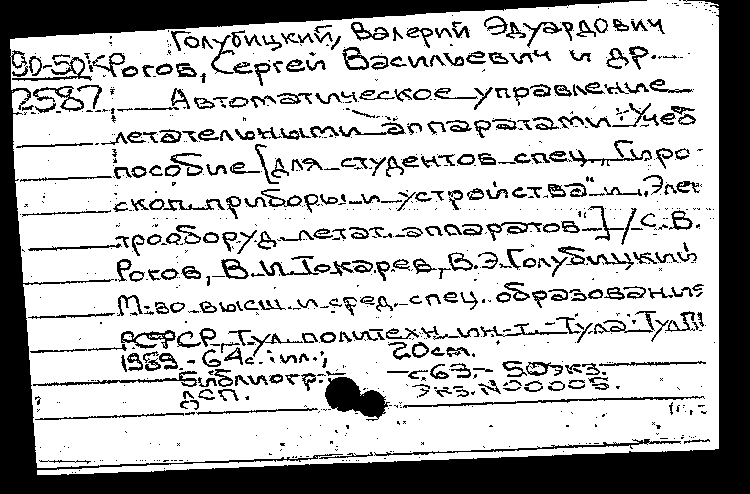 Голубицкий, Валерий Эдуардович
90-50К Рогов, Сергей Васильевич и др.
2587 Автоматическое управление
летательными аппаратами: Учеб
пособие [для студентов спец. „Гиро-
скоп. приборы и устройства" и „Элек
трооборуд. летат. аппаратов"] / С. В.
Рогов, В. И. Токарев, В. Э. Голубицкий
М-во высш и сред. спец. образования
РСФСР, Тул. политехн ин-т. - Тула: ТулПИ
1989 - 64 с.: ил.; 20 см.
Библиогр.: с 63. - 50 экз.
ДСП. Экз. N 00005.